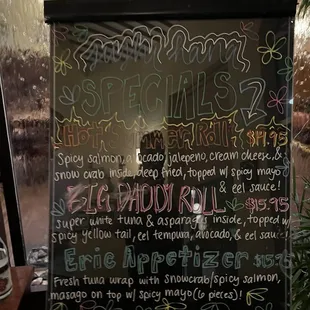 SPECIALS
HOT SUMMER ROLL $17.95
Spicy salmon, avocado jalepeno, cream cheese, &
snow crab inside, deep fried, topped w/ spicy mayo
& eel sauce!
BIG DADDY ROLL $15.95
super white tuna & asparagus inside, topped w/
spicy yellow tail, eel tempura, avocado, & eel sauce!
Eric Appetizer
Fresh tuna wrap with snowcrab/spicy salmon,
masago on top w/ spicy mayo (6 pieces)!